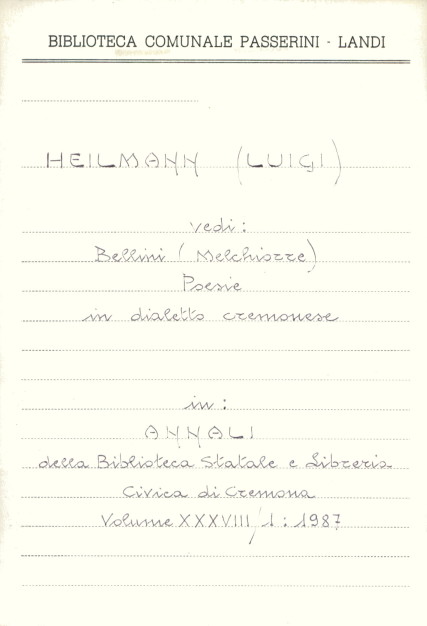 BIBLIOTECA COMUNALE PASSERINI - LANDI
HEILMANN (LUIGI)
vedi:
Bellini (Melchiorre)
Poesie
in dialetto cremonese
in:
ANNALI
della Biblioteca Statale e Libreria
Civica di Cremona
Volume XXXVIII/1: 1987